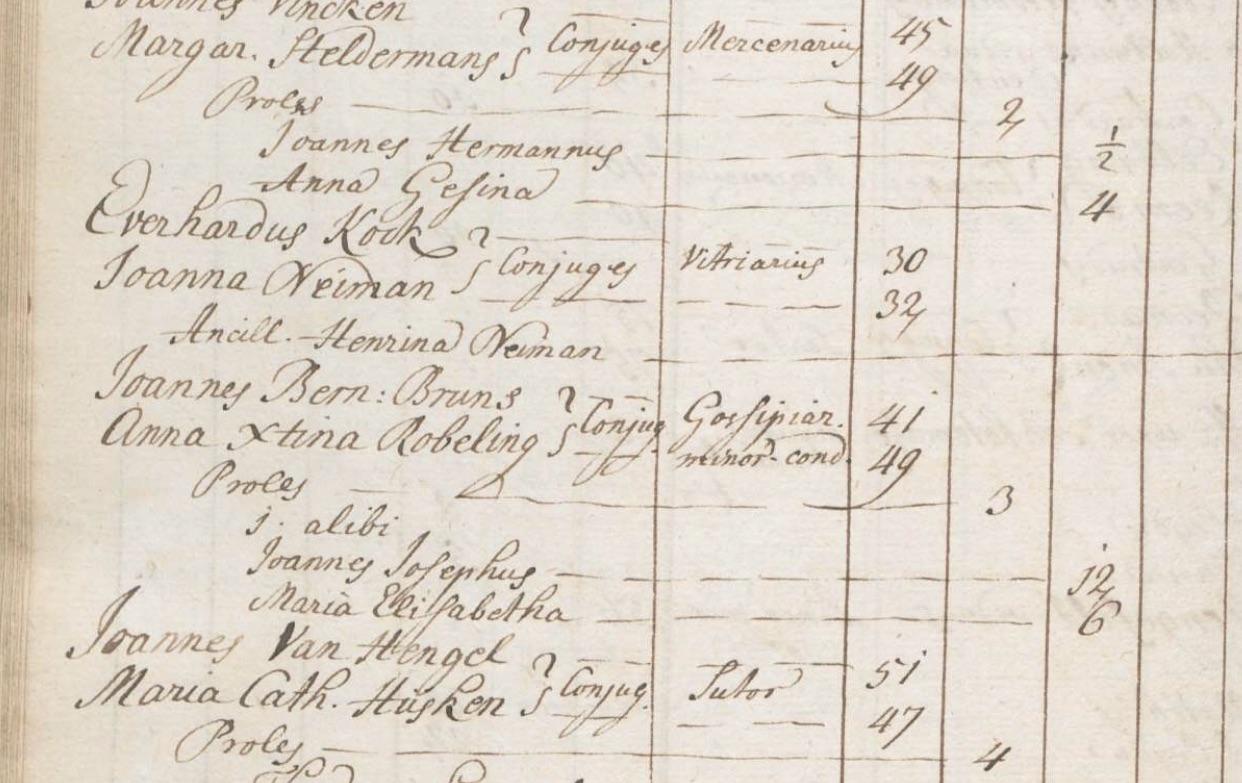 Joannes Vincken
Margar. Steldermans } Conjuges Mercenarius 45
49
Proles 2
Joannes Hermannus 1/2
Anna Gesina 4
Everhardus Kock
Joanna Neiman } Conjuges Vitriarius 30
32
Ancill. Henrina Neiman
Joannes Bern: Bruns
Anna Xtina Robeling } Conjug. Gossipiar. 41
minor. cond. 49
Proles 3
1. alibi
Joannes Josephus 12
Maria Elisabetha 6
Joannes Van Hengel
Maria Cath. Husken } Conjug. Sutor 51
47
Proles 4